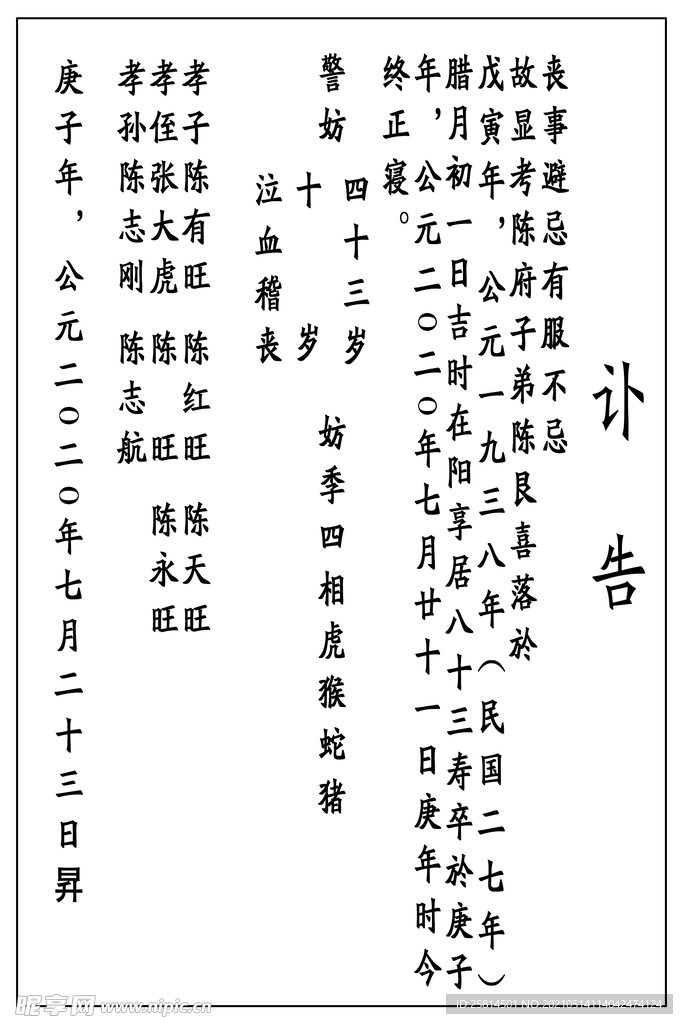 讣告
丧事避忌有服不忌
故显考陈府子弟陈艮喜落於
戊寅年，公元一九三八年（民国二七年）
腊月初一日吉时在阳享居八十三寿卒於庚子
年，公元二〇二〇年七月廿十一日庚年时今
终正寝。
四十三岁
警妨 妨季四相虎猴蛇猪
十 岁
泣血稽丧
孝子陈有旺 陈红旺 陈天旺
孝侄张大虎 陈 旺 陈永旺
孝孙陈志刚 陈志航
庚子年，公元二〇二〇年七月二十三日昇
昵享网 www.nipic.cn
ID:25814501 NO:20210514114042474124